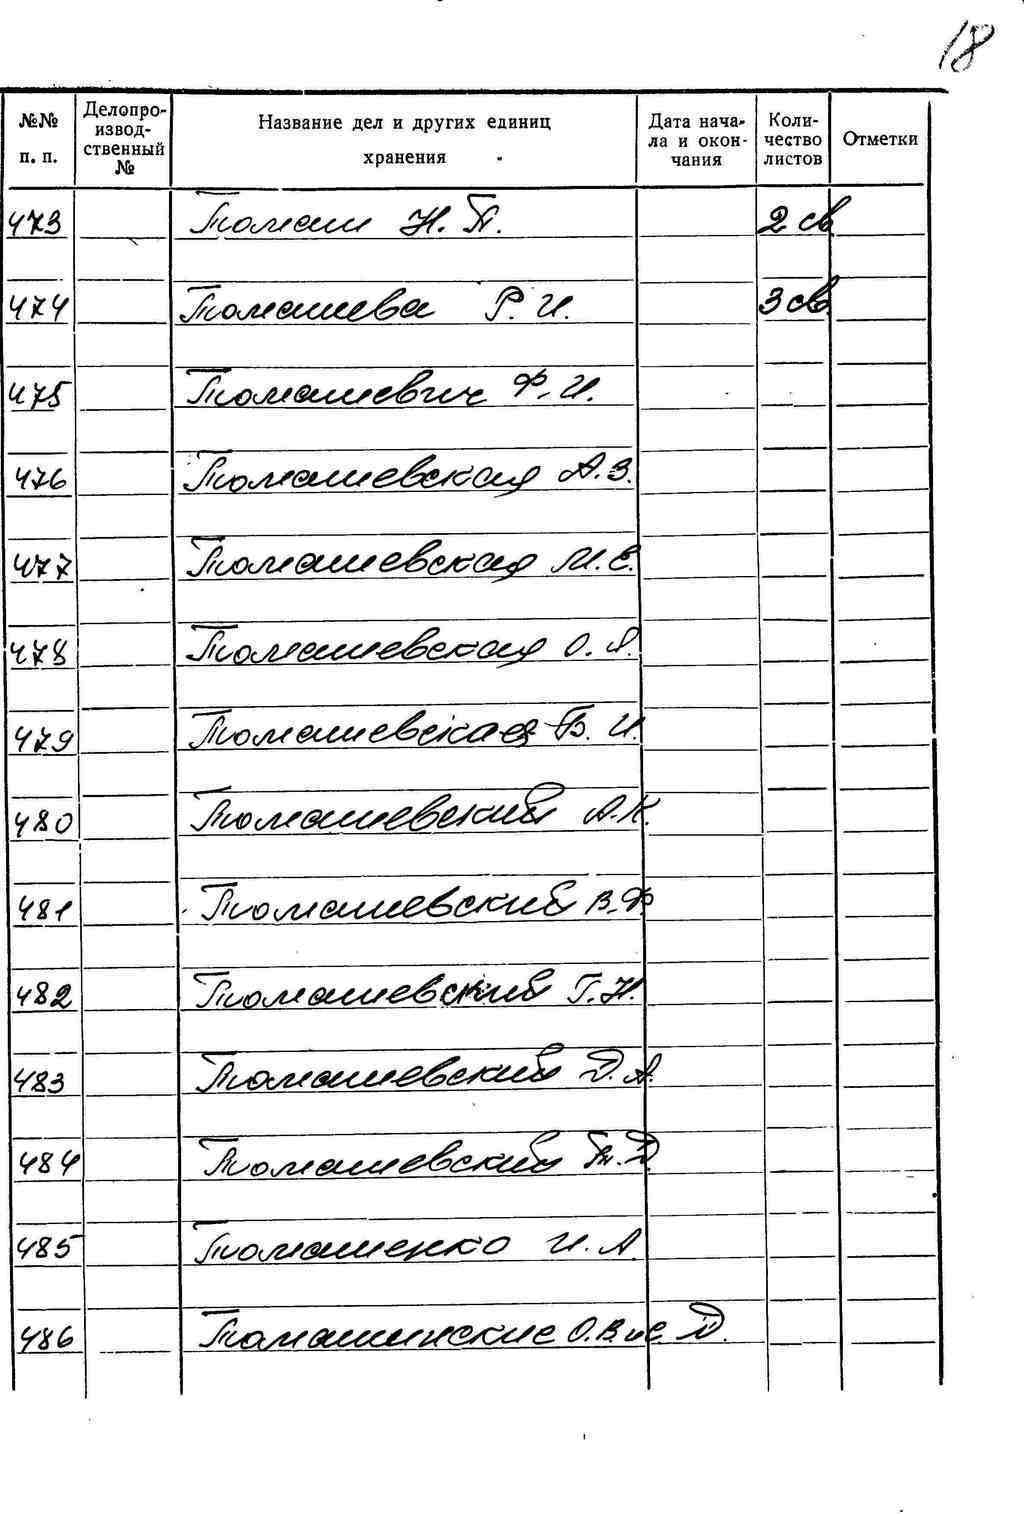 18
№№ п. п. Делопроизводственный № Название дел и других единиц хранения Дата начала и окончания Количество листов Отметки
473 Томаш Н. П. 2 св
474 Томашева Р. И. 3 св.
475 Томашевич Ф. И.
476 Томашевская А. З.
477 Томашевская М. Е.
478 Томашевская О. Я.
479 Томашевская Б. И.
480 Томашевский А. К.
481 Томашевский В. Ф.
482 Томашевский Г. Н.
483 Томашевский Д. А.
484 Томашевский Д.
485 Томашенко И. А.
486 Томашинские О. В. и С. Д.